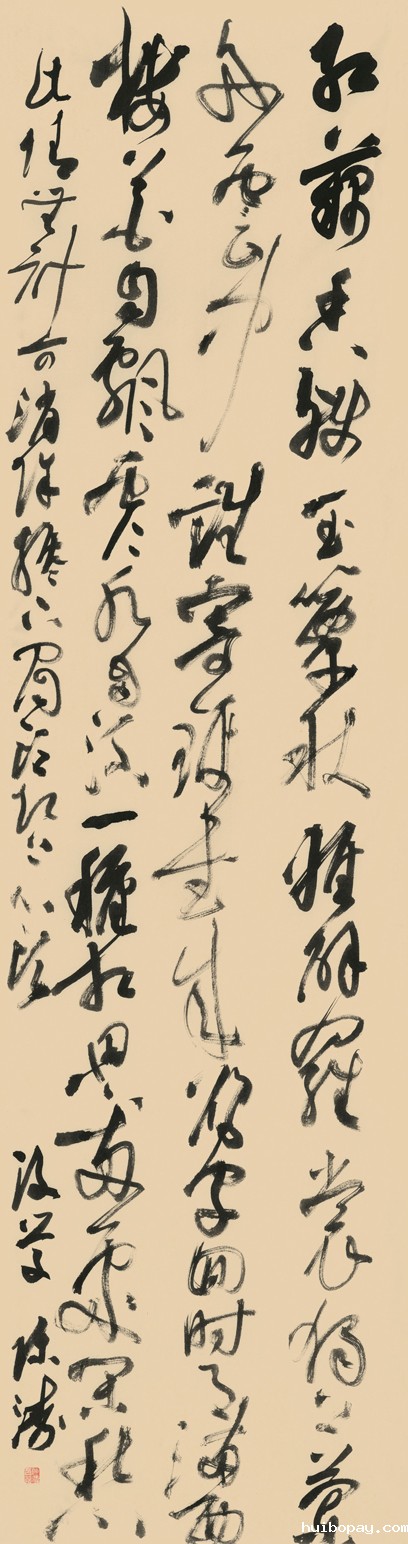 紅藕香殘玉簟秋輕解羅裳獨上蘭
舟雲中誰寄錦書來雁字回時月滿西
樓花自飄零水自流一種相思兩處閑愁
此情無計可消除纔下眉頭却上心頭
陳濤
huibopay.com